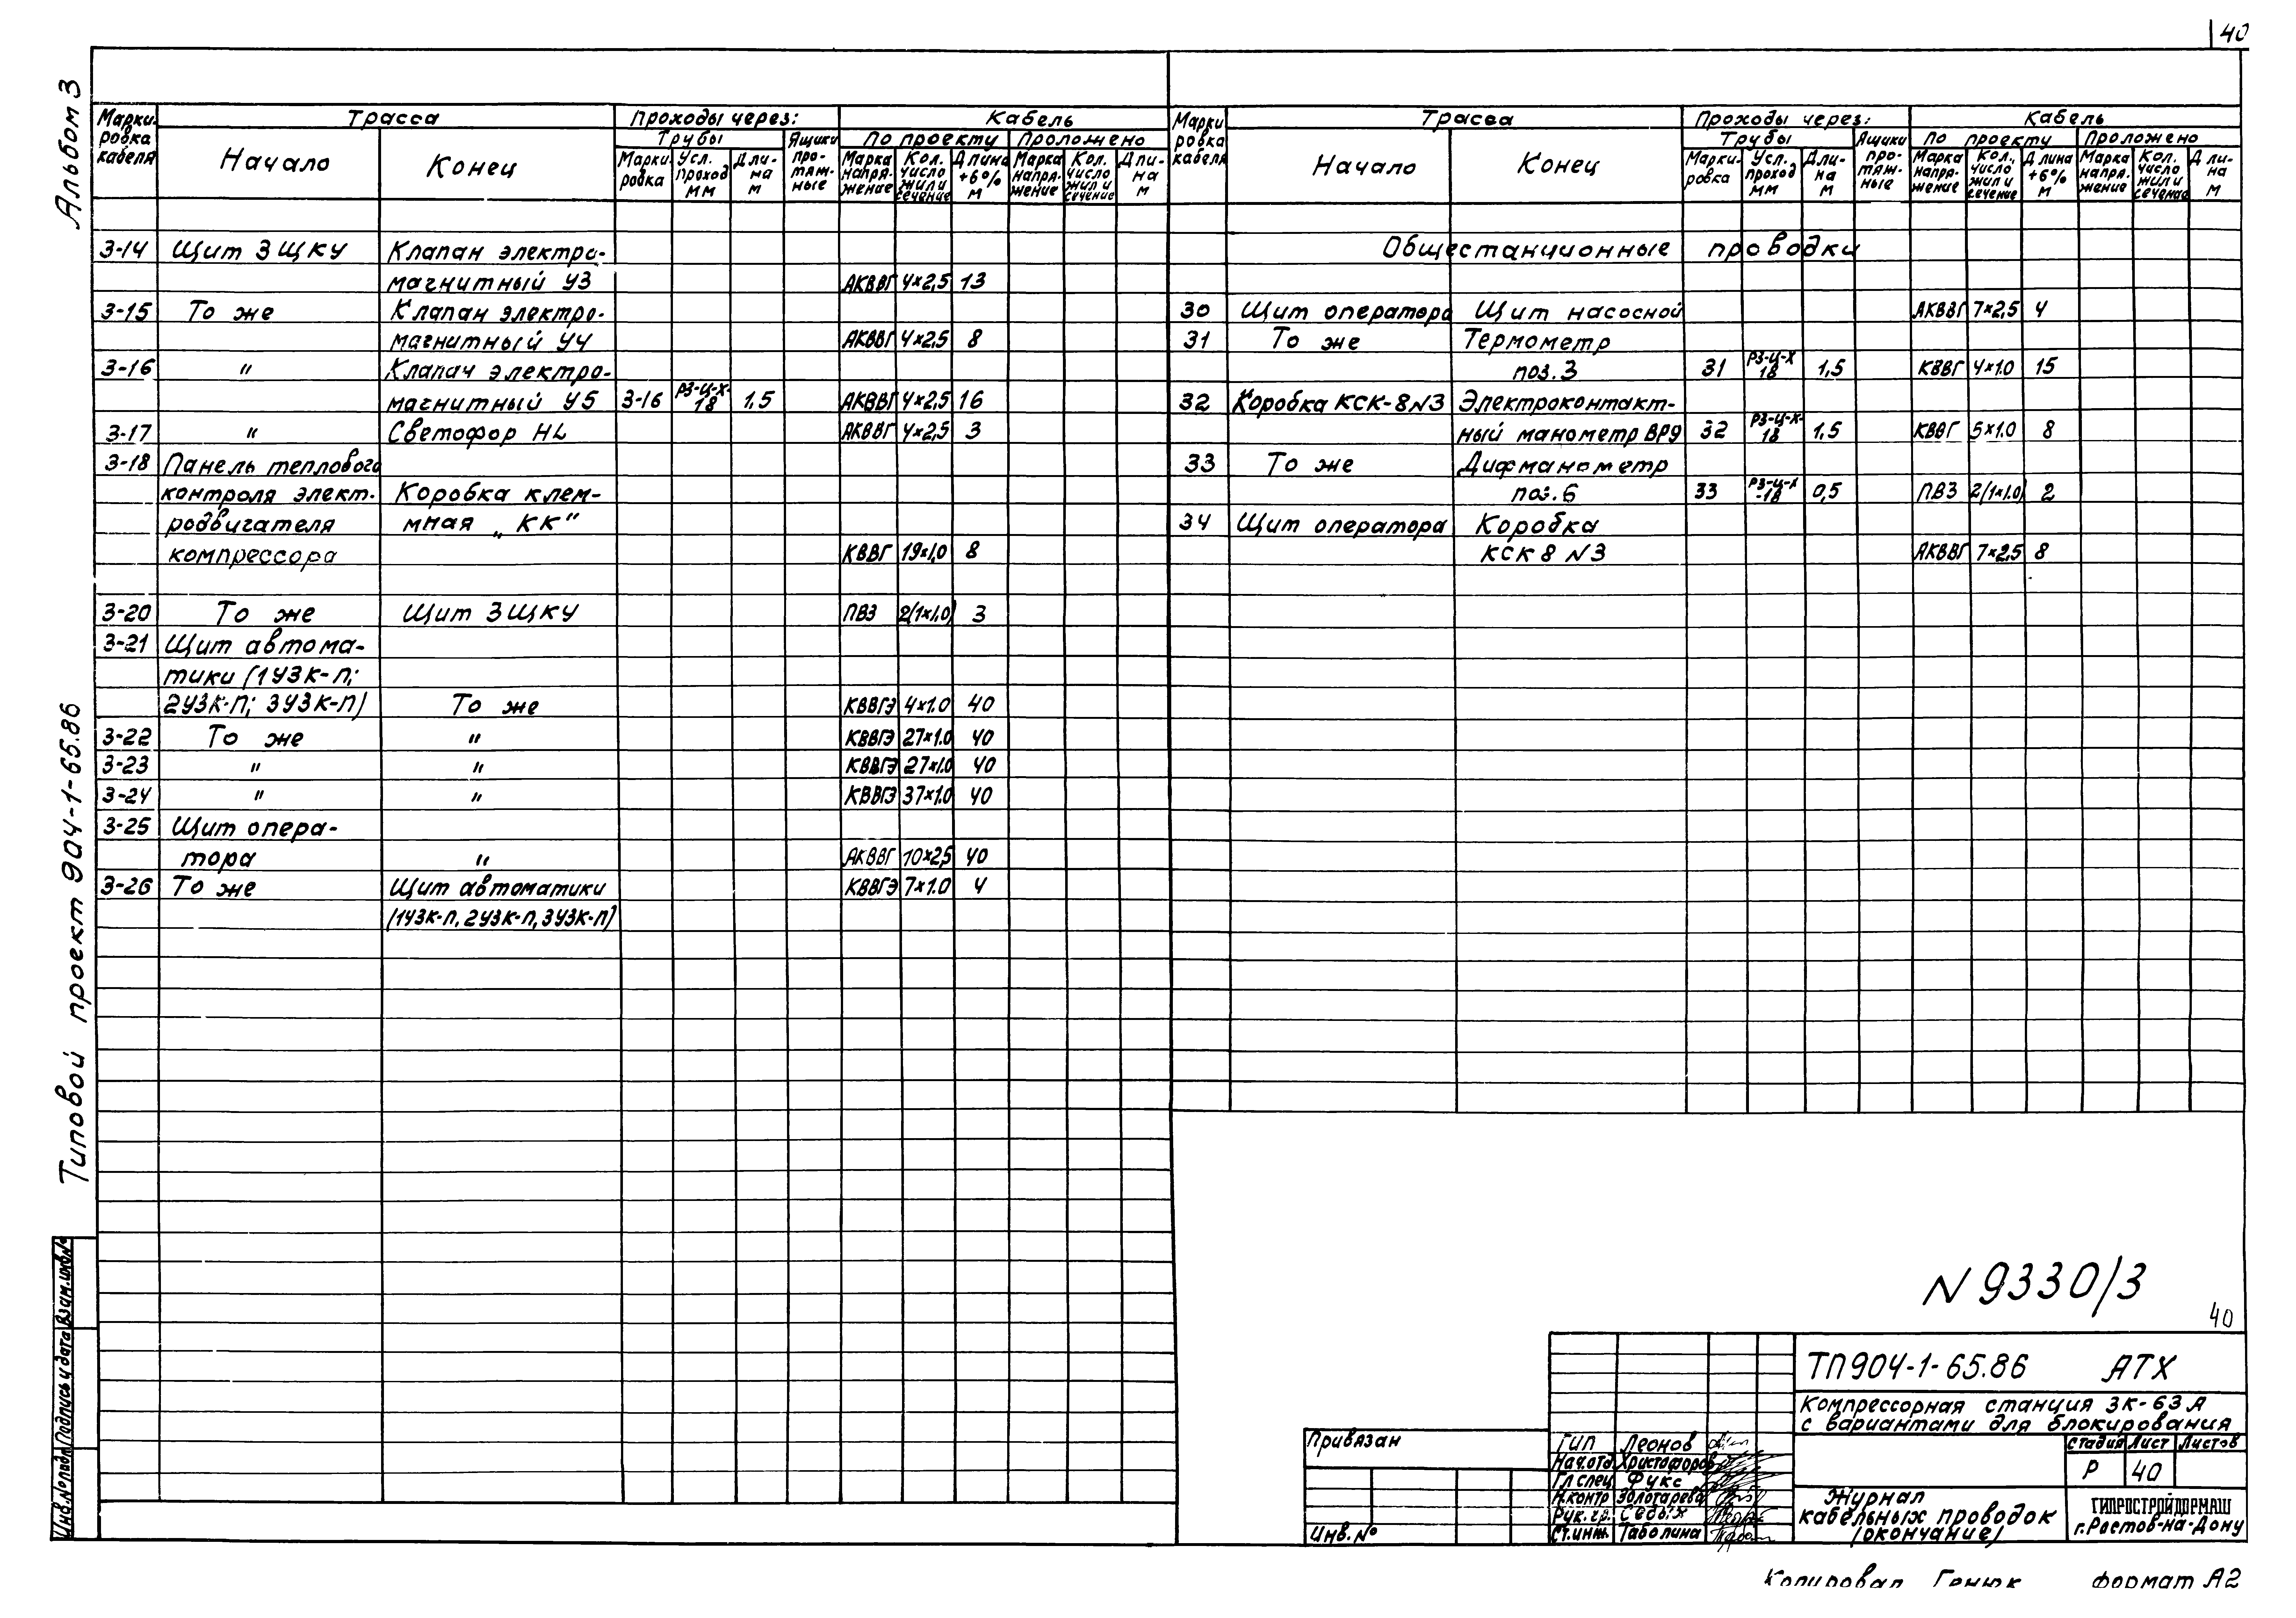 40
Альбом 3
Типовой проект 904-1-65.86
Инв.№ подл. Подпись и дата Взам.инв№
Марки-
ровка
кабеля
Трасса
Начало
Конец
Проходы через:
Трубы
Марки-
ровка
Усл.
проход
мм
Дли-
на
м
Ящики
про-
тяж-
ные
Кабель
По проекту
Проложено
Марка
напря-
жение
Кол.
число
жил и
сечение
Длина
+6%
м
Марка
напря-
жение
Кол.
число
жил и
сечение
Дли-
на
м
3-14 Щит 3ЩКУ Клапан электро-
магнитный У3 АКВВГ 4×2,5 13
3-15 То же Клапан электро-
магнитный У4 АКВВГ 4×2,5 8
3-16 " Клапан электро-
магнитный У5 3-16 РЗ-Ц-Х-18 1,5 АКВВГ 4×2,5 16
3-17 " Светофор HL АКВВГ 4×2,5 3
3-18 Панель теплового
контроля элект- Коробка клем-
родвигателя мная „КК"
компрессора КВВГ 19×1,0 8
3-20 То же Щит 3ЩКУ ПВ3 2(1×1.0) 3
3-21 Щит автома-
тики (1УЗК-П;
2УЗК-П; 3УЗК-П) То же КВВГЭ 4×1.0 40
3-22 То же " КВВГЭ 27×1.0 40
3-23 " " КВВГЭ 27×1.0 40
3-24 " " КВВГЭ 37×1.0 40
3-25 Щит опера-
тора " АКВВГ 10×2,5 40
3-26 То же Щит автоматики КВВГЭ 7×1.0 4
(1УЗК-П, 2УЗК-П, 3УЗК-П)
Марки
ровка
кабеля
Трасса
Начало
Конец
Проходы через:
Трубы
Марки-
ровка
Усл.
проход
мм
Дли-
на
м
Ящики
про-
тяж-
ные
Кабель
По проекту
Проложено
Марка
напря-
жение
Кол.,
число
жил и
сечение
Длина
+6%
м
Марка
напря-
жение
Кол.
число
жил и
сечение
Дли-
на
м
Общестанционные проводки
30 Щит оператора Щит насосной АКВВГ 7×2,5 4
31 То же Термометр
поз.3 31 РЗ-Ц-Х 18 1,5 КВВГ 4×1.0 15
32 Коробка КСК-8 №3 Электроконтакт-
ный манометр ВР9 32 РЗ-Ц-Х-18 1,5 КВВГ 5×1.0 8
33 То же Дифманометр
поз.6 33 РЗ-Ц-Х-18 0,5 ПВ3 2(1×1.0) 2
34 Щит оператора Коробка
КСК 8 №3 АКВВГ 7×2,5 8
N 9330/3
40
Привязан
Инв.№
ГИП Леонов
Нач.отд. Христофоров
Гл спец Фукс
Н.контр Золотарева
Рук.гр. Седых
Ст.инж. Таболина
ТП904-1-65.86 АТХ
Компрессорная станция 3К-63А
с вариантами для блокирования
Стадия Лист Листов
Р 40
Журнал
кабельных проводок
(окончание)
ГИПРОСТРОЙДОРМАШ
г.Ростов-на-Дону
Копировал Генюк формат А2